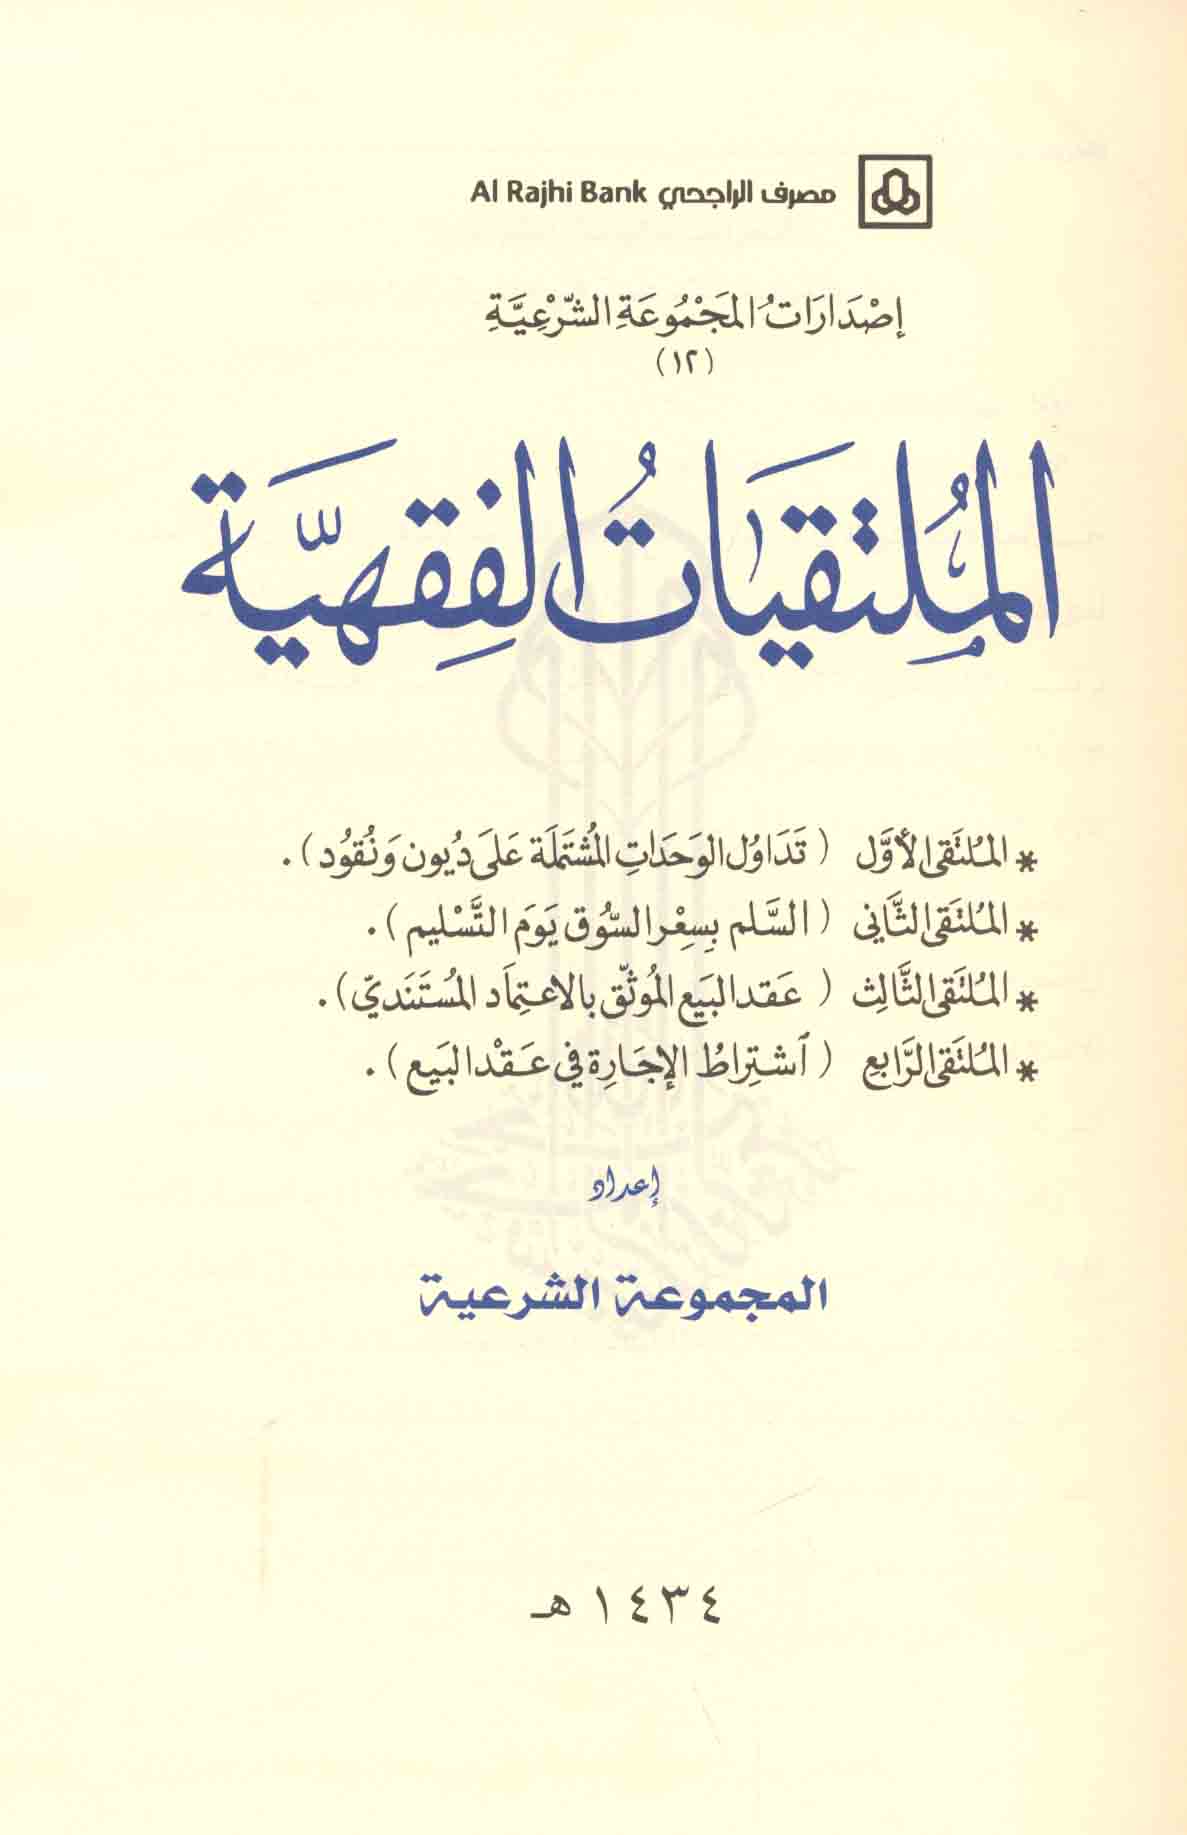 مصرف الراجحي Al Rajhi Bank
إصْدَارَاتُ المَجْمُوعَةِ الشّرْعِيَّةِ
(١٢)
المُلتقيَاتُ الفِقهيَّة
* المُلتَقى الأوَّل (تَدَاوُل الوَحَدَاتِ المُشتَمَلَة عَلى دُيون وَنُقوُد).
* المُلتَقى الثَّاني (السَّلم بِسِعْر السّوُق يَوَم التَّسْليم).
* المُلتَقى الثَّالِث (عَقد البَيع المُوثّق بالاعتِمَاد المُستَنَدي).
* المُلتَقى الرَّابِع (اَشتِراطُ الإجَارة في عَقْد البَيع).
إعداد
المجموعة الشرعية
١٤٣٤ هـ